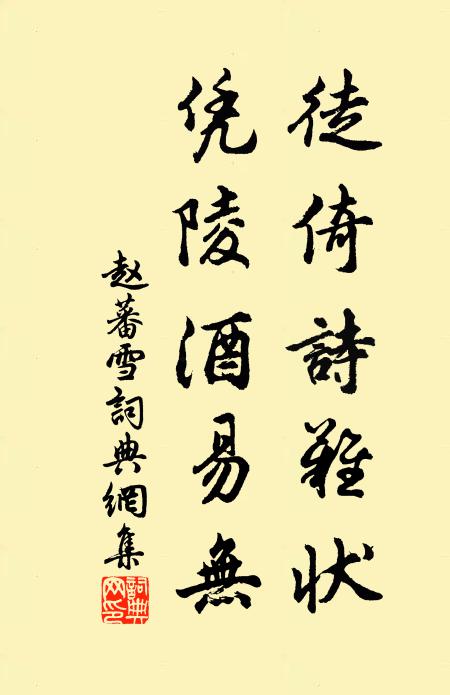 徒倚詩難状
凭陵酒易無
赵蕃雪詞典網集
詞典网